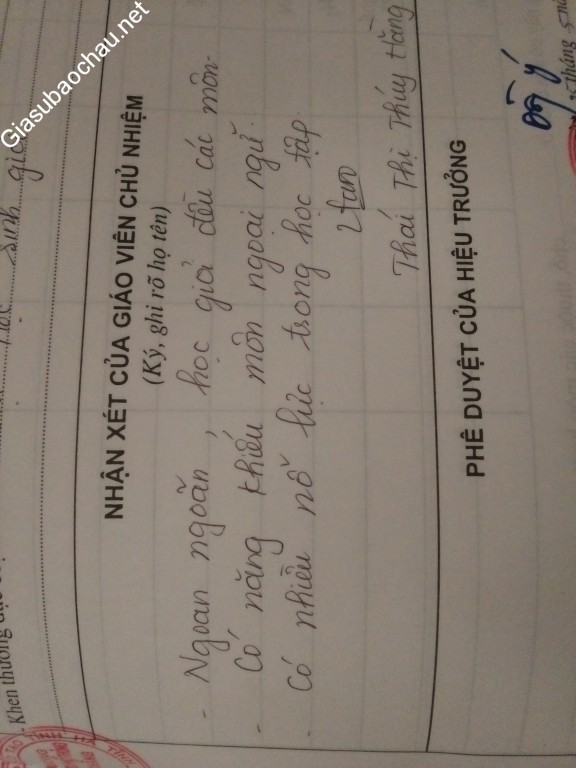 Giasubaochau.net
- Khen thưởng
Sinh giỏi
NHẬN XÉT CỦA GIÁO VIÊN CHỦ NHIỆM
(Ký, ghi rõ họ tên)
- Ngoan ngoãn, học giỏi đều các môn.
- Có năng khiếu môn ngoại ngữ.
- Có nhiều nỗ lực trong học tập.
Thái Thị Thúy Hằng
PHÊ DUYỆT CỦA HIỆU TRƯỞNG
Đồng ý
tháng 5
TỈNH HÀ TĨNH